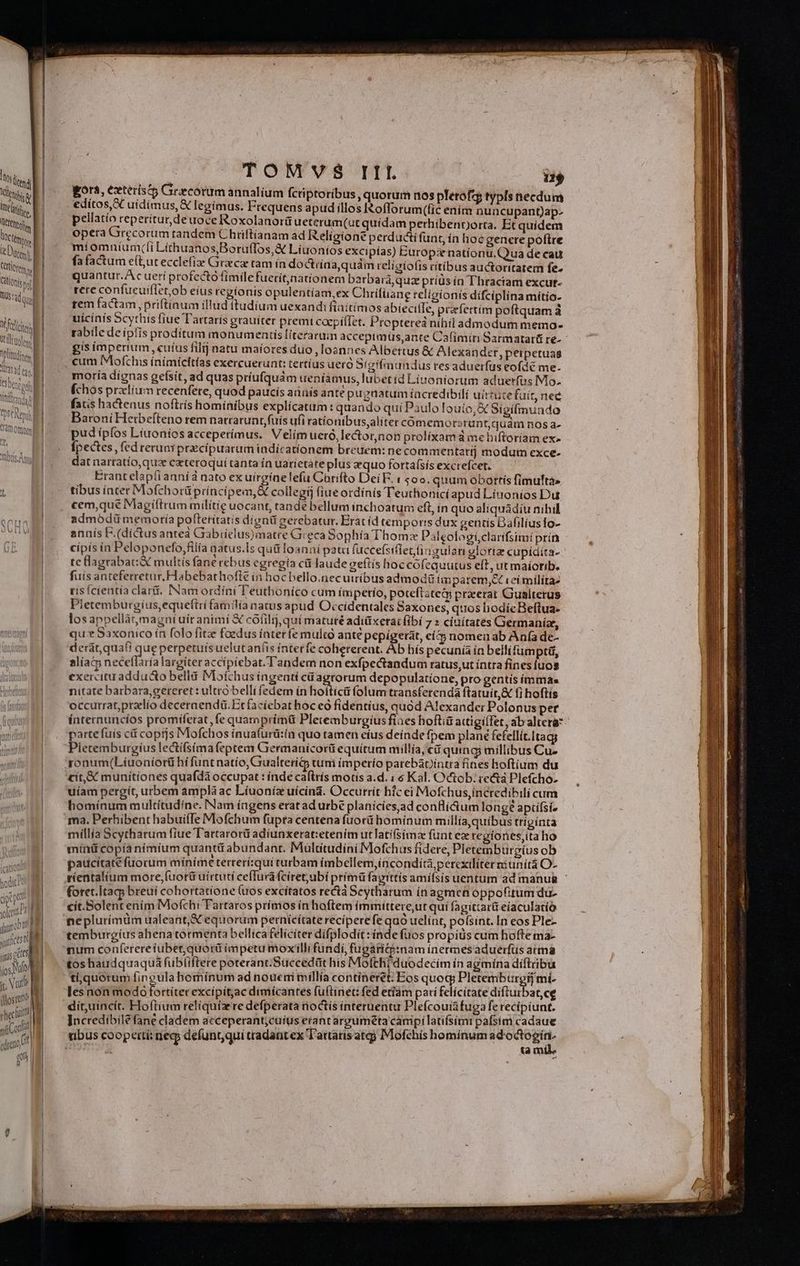 TOMVS III. 119
gora, cæterisq; Græcorum annalium scriptoribus, quorum nos plerosq; typis necdum
editos, & uidimus, & legimus. Frequens apud illos Rossorum (sic enim nuncupant) ap-
pellatio reperitur, de uoce Roxolanorū ueterum (ut quidam perhibent) orta. Et quidem
opera Græcorum tandem Christianam ad Religionē perducti sunt, in hoc genere postre
mi omnium (si Lithuanos, Borussos, & Liuonios excipias) Europæ nationū. Qua de cau
sa factum est, ut ecclesiæ Græcæ tam in doctrina, quàm religiosis ritibus auctoritatem se-
quantur. Ac ueri profectò simile fuerit, nationem barbarā, quæ priùs in Thraciam excur-
rere consueuisset, ob eius regionis opulentiam, ex Christianæ religionis disciplina mitio-
rem factam, pristinum illud studium uexandi finitimos abiecisse, præsertim postquam à
uicinis Scythis siue Tartaris grauiter premi cœpisset. Propterea nihil admodum memo-
rabile de ipsis proditum monumentis literarum accepimus, ante Casimiri Sarmatarū re-
gis imperium, cuius filij natu maiores duo, Ioannes Albertus & Alexander, perpetuas
cum Moschis inimicitias exercuerunt: tertius uerò Sigismundus res aduersus eosdē me-
moria dignas gessit, ad quas priusquàm ueniamus, lubet id Liuoniorum aduersus Mo-
schos prælium recensere, quod paucis annis antè pugnatum incredibili uirtute fuit, nec
satis hactenus nostris hominibus explicatum: quando qui Paulo Iouio, & Sigismundo
Baroni Herbesteno rem narrarunt, suis usi rationibus, aliter cōmemorarunt, quàm nos a-
pud ipsos Liuonios acceperimus. Velim uerò, lector, non prolixam à me historiam ex-
spectes, sed rerum præcipuarum indicationem breuem: ne commentarij modum exce-
dat narratio, quæ cæteroqui tanta in uarietate plus æquo fortassis excresceret.
Erant elapsi anni à nato ex uirgine Iesu Christo Dei F. 1500. quum obortis simulta-
tibus inter Moschorū principem, & collegij siue ordinis Teuthonici apud Liuonios Du
cem, quē Magistrum militię uocant, tandē bellum inchoatum est, in quo aliquādiu nihil
admodū memoria posteritatis dignū gerebatur. Erat id temporis dux gentis Basilius Io-
annis F. (dictus anteà Gabrielus) matre Græca Sophia Thomæ Palęologi, clarissimi prin
cipis in Peloponeso, filia natus. Is quū Ioanni patri successisset, singulari gloriæ cupidita-
te flagrabat: & multis sanè rebus egregia cū laude gestis hoc cōsequutus est, ut maiorib.
suis anteferretur. Habebat hostē in hoc bello. nec uiribus admodū imparem, & rei milita-
ris scientia clarū. Nam ordini Teuthonico cum imperio, potestateq; præerat Gualterus
Pletemburgius, equestri familia natus apud Occidentales Saxones, quos hodie Vestua-
los appellāt, magni uir animi & cōsilij, qui maturè adiūxerat sibi 72 ciuitates Germaniæ,
quæ Saxonico in solo sitæ fœdus inter se multò antè pepigerāt, eiq; nomen ab Ansa de-
derāt, quasi quę perpetuis uelut ansis inter se cohærerent. Ab his pecunia in belli sumptū,
aliaq; necessaria largiter accipiebat. Tandem non exspectandum ratus, ut intra fines suos
exercitu adducto bellū Moschus ingenti cū agrorum depopulatione, pro gentis imma-
nitate barbara, gereret: ultrò belli sedem in hosticū solum transferendā statuit, & si hostis
occurrat, prælio decernendū. Et faciebat hoc eò fidentius, quòd Alexander Polonus per
internuncios promiserat, se quamprimū Pletemburgius fines hostiū attigisset, ab altera
parte suis cū copijs Moschos inuasurū: in quo tamen eius deinde spem planè fefellit. Itaq;
Pletemburgius lectissima septem Germanicorū equitum millia, cū quinq; millibus Cu-
ronum (Liuoniorū hi sunt natio, Gualteriq; tum imperio parebāt) intra fines hostium du
cit, & munitiones quasdā occupat: inde castris motis a.d. 16 Kal. Octob. rectà Plescho-
uiam pergit, urbem amplā ac Liuoniæ uicinā. Occurrit hîc ei Moschus, incredibili cum
hominum multitudine. Nam ingens erat ad urbē planicies, ad conflictum longè aptissi-
ma. Perhibent habuisse Moschum supra centena suorū hominum millia, quibus triginta
millia Scytharum siue Tartarorū adiunxerat: etenim ut latissimæ sunt eæ regiones, ita ho
minū copia nimium quantū abundant. Multitudini Moschus fidere, Pletemburgius ob
paucitatē suorum minimè terreri: qui turbam imbellem, inconditā, perexiliter munitā O-
rientalium more, suorū uirtuti cessurā sciret, ubi primū sagittis amissis uentum ad manus
foret. Itaq; breui cohortatione suos excitatos rectà Scytharum in agmen oppositum du-
cit. Solent enim Moschi Tartaros primos in hostem immittere, ut qui sagittarū eiaculatio
ne plurimùm ualeant, & equorum pernicitate recipere se quò uelint, possint. In eos Ple-
temburgius ahena tormenta bellica feliciter displodit: inde suos propiùs cum hoste ma-
num conserere iubet, quorū impetu mox illi fundi, fugariq;: nam inermes aduersus arma
tos haudquaquā subsistere poterant. Succedūt his Moschi duodecim in agmina distribu
ti, quorum singula hominum ad nouem millia contineret. Eos quoq; Pletemburgij mi-
les non modò fortiter excipit, ac dimicantes sustinet: sed etiam pari felicitate disturbat, cę
dit, uincit. Hostium reliquiæ re desperata noctis interuentu Plescouiā fuga se recipiunt.
Incredibilē sanè cladem acceperant, cuius erant argumēta campi latissimi passim cadaue
ribus cooperti: neq; desunt, qui tradant ex Tartaris atq; Moschis hominum ad octogin-
ta mil-